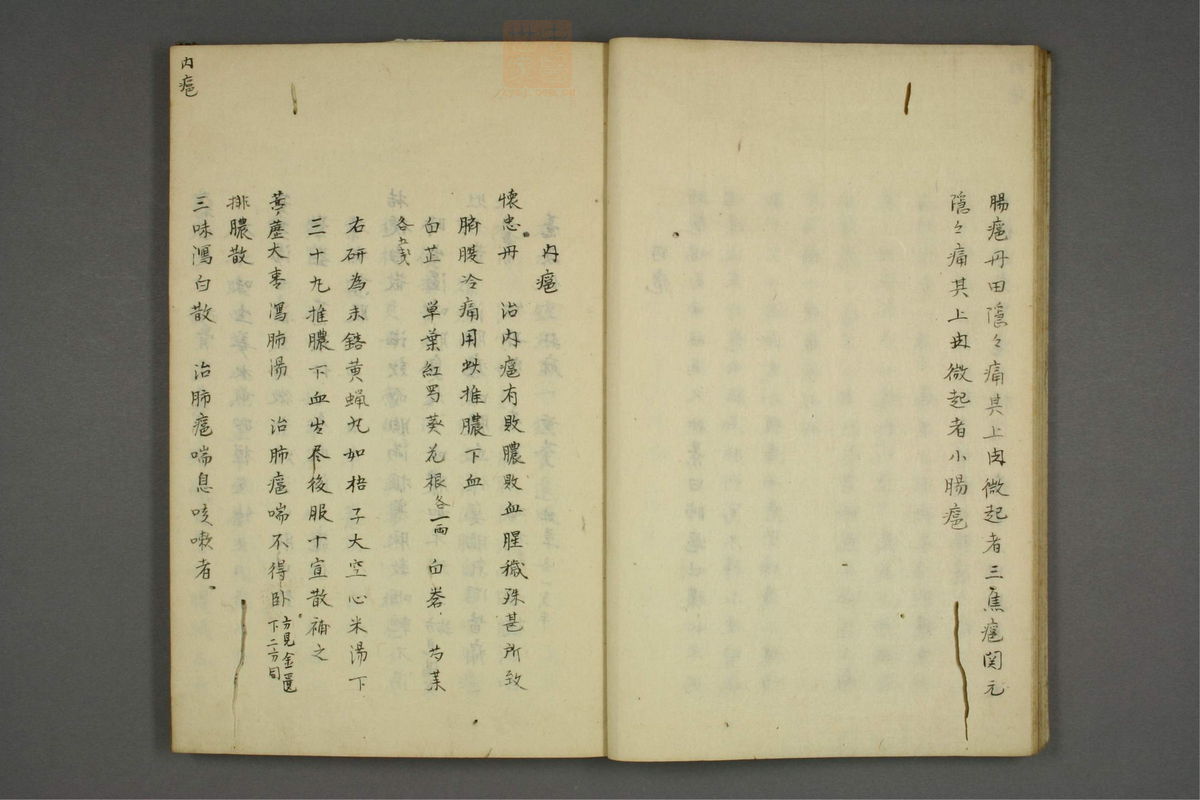 腸疽丹田隱々痛其上肉微起者三焦疽関元
隱々痛其上肉微起者小腸疽
内疽
内疽
懷忠丹 治内疽有敗膿敗血腥穢殊甚所致
臍腹冷痛用此推膿下血
白芷 單葉紅蜀葵花根各一兩 白礬 芍藥
各五戔
右研為末鎔黄蝋丸如梧子大空心米湯下
三十丸推膿下血出尽後服十宣散補之
葶藶大棗瀉肺湯 治肺疽喘不得卧方見金匱下二方同
排膿散
三味瀉白散 治肺疽喘息咳嗽者